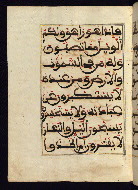 فإذا هو زاهق ولكم
الويل مما تصفون
وله من في السموت
والأرض ومن عنده
لا يستكبرون عن
عبادته ولا يستحسرون
يسبحون اليل والنهار
لا يفترون أم اتخذوا